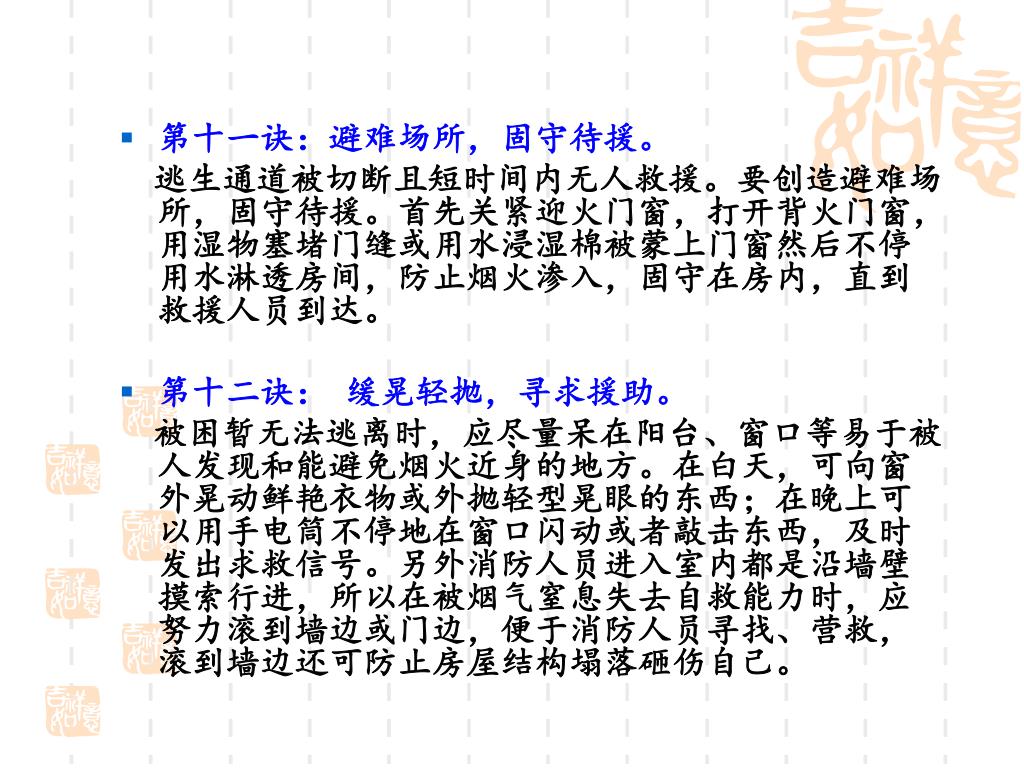 吉祥
如意
第十一诀：避难场所，固守待援。
逃生通道被切断且短时间内无人救援。要创造避难场
所，固守待援。首先关紧迎火门窗，打开背火门窗，
用湿物塞堵门缝或用水浸湿棉被蒙上门窗然后不停
用水淋透房间，防止烟火渗入，固守在房内，直到
救援人员到达。
第十二诀： 缓晃轻抛，寻求援助。
被困暂无法逃离时，应尽量呆在阳台、窗口等易于被
人发现和能避免烟火近身的地方。在白天，可向窗
外晃动鲜艳衣物或外抛轻型晃眼的东西；在晚上可
以用手电筒不停地在窗口闪动或者敲击东西，及时
发出求救信号。另外消防人员进入室内都是沿墙壁
摸索行进，所以在被烟气窒息失去自救能力时，应
努力滚到墙边或门边，便于消防人员寻找、营救，
滚到墙边还可防止房屋结构塌落砸伤自己。
吉祥如意
吉祥如意
吉祥如意
吉祥如意
吉祥如意
吉祥如意